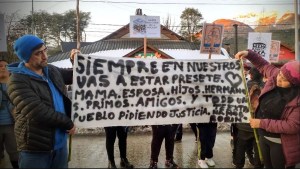 SIEMPRE EN NUESTROS
VAS A ESTAR PRESETE.
MAMA. ESPOSA. HIJOS. HERMANOS
S. PRIMOS. AMIGOS. Y TODO UN
PUEBLO PIDIENDO JUSTICIA.